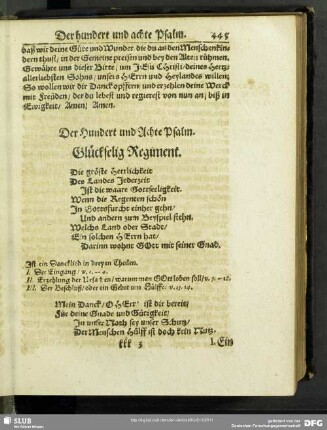 Der hundert und achte Psalm. 445
daß wir deine Güte und Wunder, die du an den Menschenkin-
dern thust, in der Gemeine preisen und bey den Alten rühmen,
Gewähre uns dieser Bitte, um JEsu Christi deines Hertz-
allerliebsten Sohns, unsers HErrn und Heylandes willen;
So wollen wir dir Danckopffern und erzehlen deine Werck
mit Freuden; der du lebest und regierest von nun an, biß in
Ewigkeit, Amen; Amen.
Der Hundert und Achte Psalm.
Glückselig Regiment.
Die gröste Herrlichkeit
Des Landes Jederzeit
Ist die waare Gottseeligkeit.
Wenn die Regenten schön
In Gottsfurcht einher gehn/
Und andern zum Beyspiel stehn,
Welchs Land oder Stadt/
Ein solchen HErrn hat/
Darinn wohnt GOtt mit seiner Gnad.
Ist ein Dancklied in dreyen Theilen.
I. Der Eingang/ v. 1.--4.
II. Erzehlung der Ursachen/ warum man GOtt loben soll/ v. 5.--12.
III. Der Beschluß/ oder ein Gebet um Hülffe: v. 13. 14.
Mein Danck/ O HErr/ ist dir bereit/
Für deine Gnade und Gütigkeit/
In unser Noth sey unser Schutz/
Der Menschen Hülff ist doch kein Nutz.
kkk 3 1. Ein
SLUB
DFG